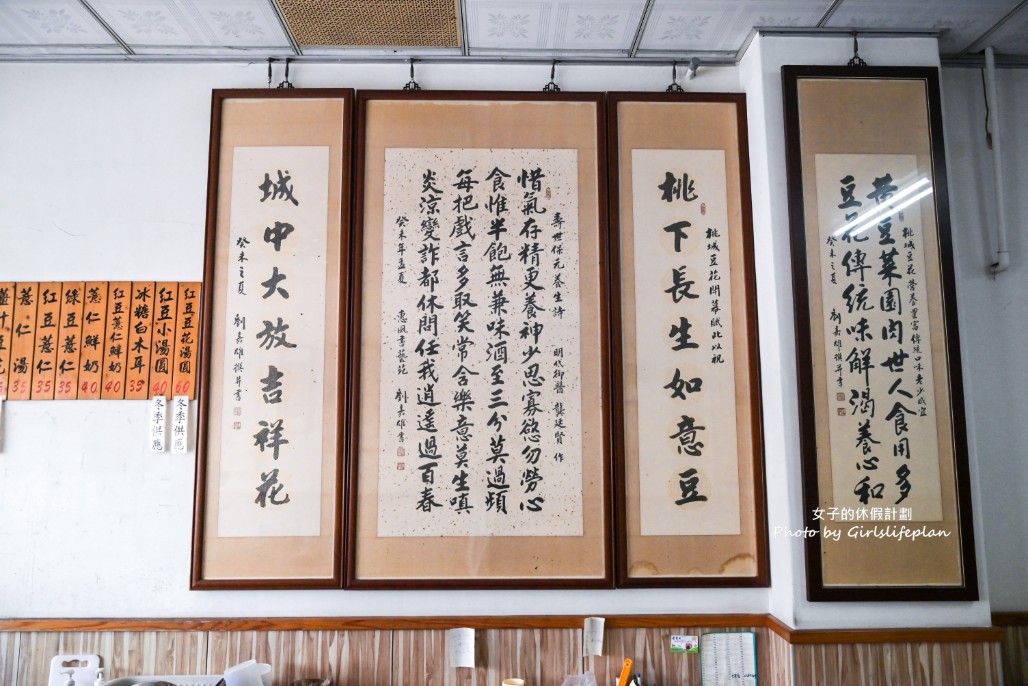 黃豆菜園肉世人食用多
豆花傳統味解渴養心和
桃城豆花營養豐富傳統口味老少咸宜
癸未之夏 劉嘉雄撰并書
桃城豆花開幕賦此以祝
桃下長生如意豆
壽世保元養生詩 明代御醫 龔廷賢 作
惜氣存精更養神少思寡慾勿勞心
食惟半飽無兼味酒至三分莫過頻
每把戲言多取笑常含樂意莫生嗔
炎涼變詐都休問任我逍遙過百春
癸未年孟夏 惠風書藝苑 劉嘉雄書
城中大放吉祥花
癸未之夏 劉嘉雄撰并書
紅豆豆花湯圓 60
紅豆小湯圓 40
冰糖白木耳 35
紅豆薏仁鮮奶 40
薏仁鮮奶 40
綠豆薏仁 35
紅豆薏仁 35
薏仁湯 35
冬季供應
冬季供應
女子的休假計劃
Photo by Girlslifeplan